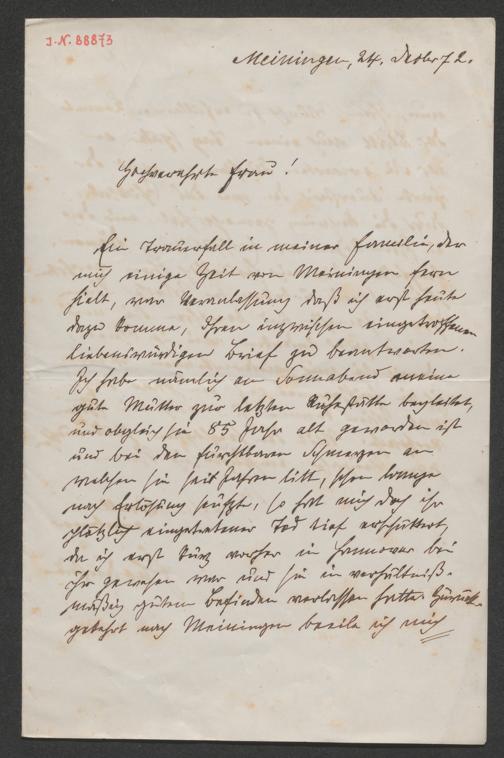 I.N. 88873
Meiningen, 24. Dezbr 72.
Hochverehrte Frau!
Ein Trauerfall in meiner Familie, der
mich einige Zeit von Meiningen fern
hielt, war Veranlassung daß ich erst heute
dazu komme, Ihren inzwischen eingetroffenen
liebenswürdigen Brief zu beantworten.
Ich habe nämlich am Sonnabend meine
gute Mutter zur letzten Ruhestätte begleitet,
und obgleich sie 85 Jahr alt geworden ist
und bei den furchtbaren Schmerzen an
welchen sie seit Jahren litt, schon lange
nach Erlösung seufzte, so hat mich doch ihr
plötzlich eingetretener Tod tief erschüttert,
da ich erst kurz vorher in Hannover bei
Ihr gewesen war und sie in verhältniß-
mäßig gutem Befinden verlassen hatte. Zurück-
gekehrt nach Meiningen beeile ich mich